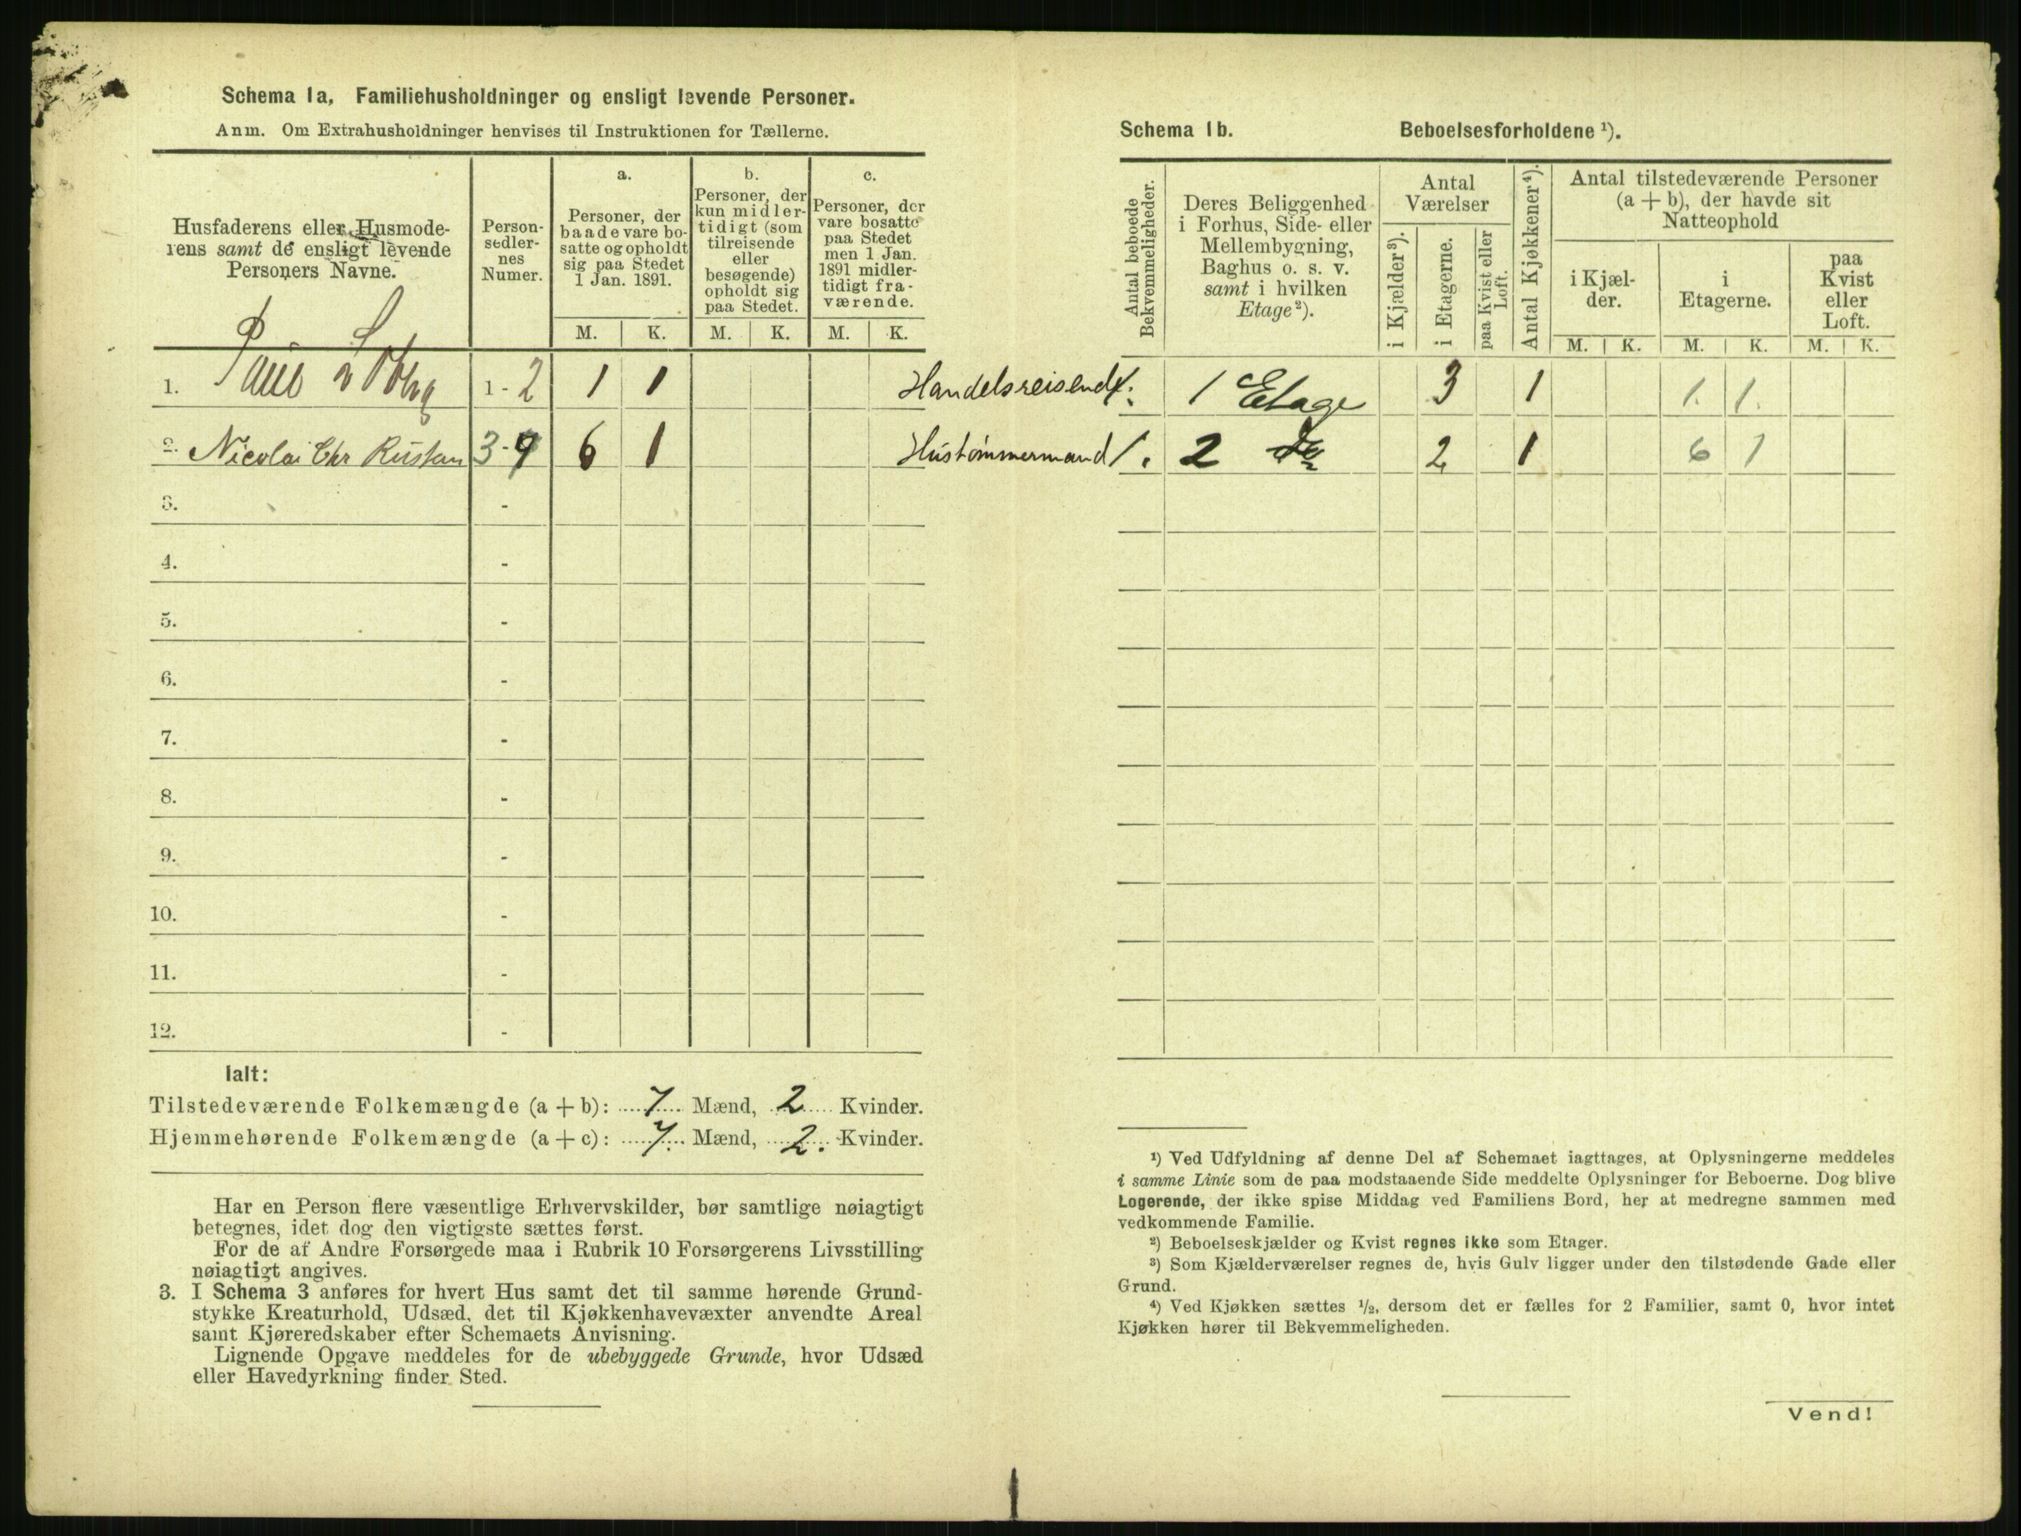 Schema 1a, Familiehusholdninger og ensligt levende Personer.
Anm. Om Extrahusholdninger henvises til Instruktionen for Tællerne.
Husfaderens eller Husmoderens samt de ensligt levende Personers Navne.
Personsedlernes Numer.
a.
Personer, der baade vare bosatte og opholdt sig paa Stedet 1 Jan. 1891.
b.
Personer, der kun midlertidigt (som tilreisende eller besøgende) opholdt sig paa Stedet.
c.
Personer, der vare bosatte paa Stedet men 1 Jan. 1891 midlertidigt fraværende.
M. K. M. K. M. K.
1. 1 - 2 1 1 Handelsreisende
2. Nicolai Chr Rustan 3 - 9 6 1 Hustømmermand
3. -
4. -
5. -
6. -
7. -
8. -
9. -
10. -
11. -
12. -
Ialt:
Tilstedeværende Folkemængde (a + b): 7 Mænd, 2 Kvinder.
Hjemmehørende Folkemængde (a + c): 7. Mænd, 2. Kvinder.
Har en Person flere væsentlige Erhvervskilder, bør samtlige nøiagtigt
betegnes, idet dog den vigtigste sættes først.
For de af Andre Forsørgede maa i Rubrik 10 Forsørgerens Livsstilling
nøiagtigt angives.
3. I Schema 3 anføres for hvert Hus samt det til samme hørende Grund-
stykke Kreaturhold, Udsæd, det til Kjøkkenhavevæxter anvendte Areal
samt Kjøreredskaber efter Schemaets Anvisning.
Lignende Opgave meddeles for de ubebyggede Grunde, hvor Udsæd
eller Havedyrkning finder Sted.
Schema 1b. Beboelsesforholdene ¹).
Antal beboede Bekvemmeligheder.
Deres Beliggenhed i Forhus, Side- eller Mellembygning, Baghus o. s. v. samt i hvilken Etage²).
Antal Værelser
i Kjælder³).
i Etagerne.
paa Kvist eller Loft.
Antal Kjøkkener⁴).
Antal tilstedeværende Personer (a + b), der havde sit Natteophold
i Kjælder.
i Etagerne.
paa Kvist eller Loft.
M. K. M. K. M. K.
1. 1 Etage 3 1 1. 1.
1. 2 do 2 1 6 1
¹) Ved Udfyldning af denne Del af Schemaet iagttages, at Oplysningerne meddeles
i samme Linie som de paa modstaaende Side meddelte Oplysninger for Beboerne. Dog blive
Logerende, der ikke spise Middag ved Familiens Bord, her at medregne sammen med
vedkommende Familie.
²) Beboelseskjælder og Kvist regnes ikke som Etager.
³) Som Kjælderværelser regnes de, hvis Gulv ligger under den tilstødende Gade eller
Grund.
⁴) Ved Kjøkken sættes ½, dersom det er fælles for 2 Familier, samt 0, hvor intet
Kjøkken hører til Bekvemmeligheden.
Vend!